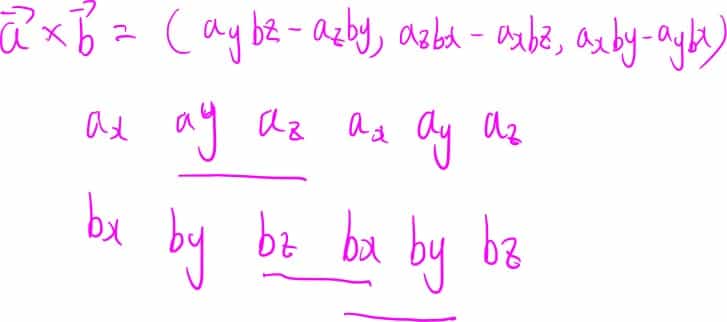 a⃗ × b⃗ = (aybz - azby, azbx - axbz, axby - aybx)
ax ay az ax ay az
bx by bz bx by bz